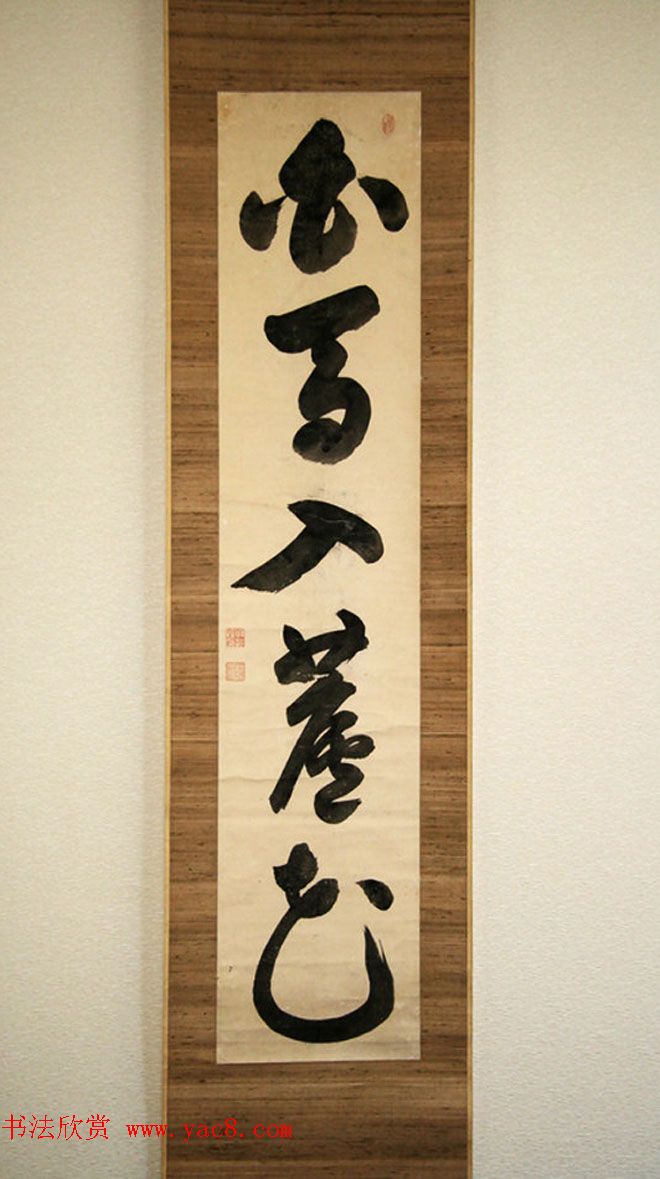 白馬入蘆花
书法欣赏 www.yac8.com